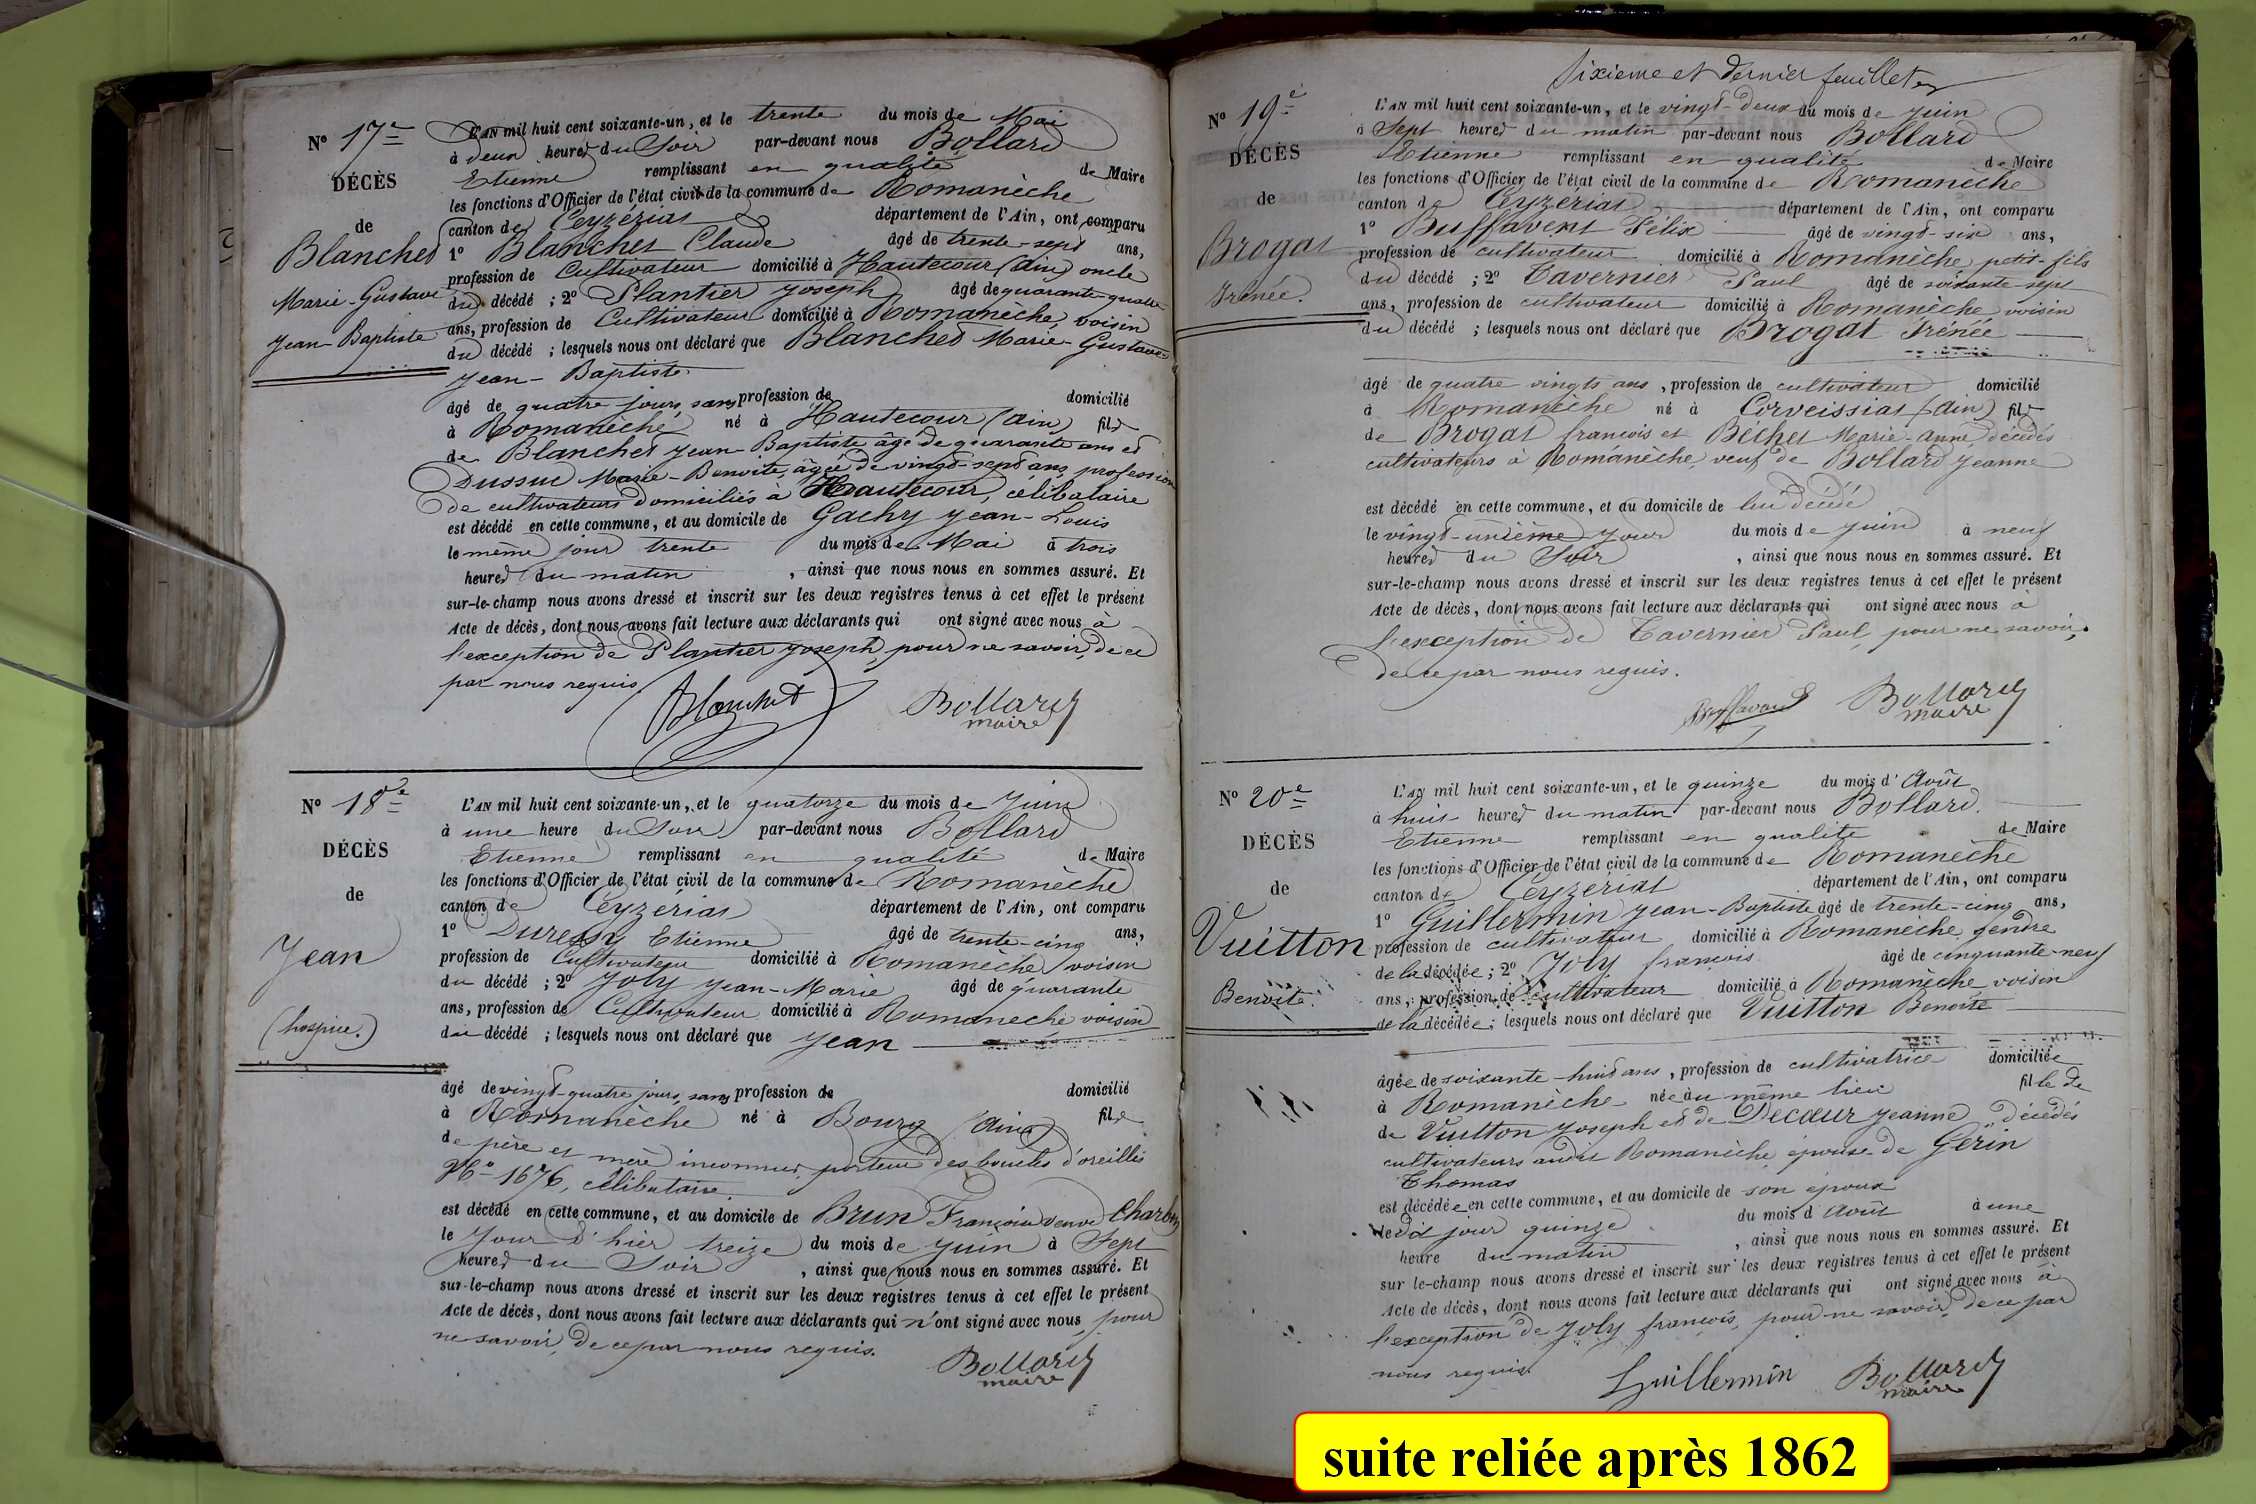 Nº 17e
DÉCÈS
de
Blanchet
Marie-Gustave
Jean-Baptiste
L'AN mil huit cent soixante-un, et le trente du mois de Mai
à deux heures du Soir par-devant nous Bollard
Etienne remplissant en qualité de Maire
les fonctions d'Officier de l'état civil de la commune de Romanèche
canton de Ceyzériat département de l'Ain, ont comparu
1º Blanchet Claude âgé de trente-sept ans,
profession de Cultivateur domicilié à Hautecour (Ain) oncle
du décédé ; 2º Plantier Joseph âgé de quarante-quatre
ans, profession de Cultivateur domicilié à Romanèche, voisin
du décédé ; lesquels nous ont déclaré que Blanchet Marie-Gustave
Jean-Baptiste
âgé de quatre jours, sans profession de domicilié
à Romanèche né à Hautecour (Ain) fils
de Blanchet Jean-Baptiste âgé de quarante ans et
Dussuc Marie-Benoite, âgée de vingt-sept ans, profession
de cultivateurs domiciliés à Hautecour, célibataire
est décédé en cette commune, et au domicile de Gachy Jean-Louis
le même jour trente du mois de Mai à trois
heures du matin , ainsi que nous nous en sommes assuré. Et
sur-le-champ nous avons dressé et inscrit sur les deux registres tenus à cet effet le présent
Acte de décès, dont nous avons fait lecture aux déclarants qui ont signé avec nous à
l'exception de Plantier Joseph, pour ne savoir, de ce
par nous requis.
Blanchet Bollard
maire
Nº 18e
DÉCÈS
de
Jean
(hospice.)
L'AN mil huit cent soixante-un, et le quatorze du mois de Juin
à une heure du Soir par-devant nous Bollard
Etienne remplissant en qualité de Maire
les fonctions d'Officier de l'état civil de la commune de Romanèche
canton de Ceyzériat département de l'Ain, ont comparu
1º Duressy Etienne âgé de trente-cinq ans,
profession de Cultivateur domicilié à Romanèche, voisin
du décédé ; 2º Joly Jean-Marie âgé de quarante
ans, profession de Cultivateur domicilié à Romanèche, voisin
du décédé ; lesquels nous ont déclaré que Jean
âgé de vingt-quatre jours, sans profession de domicilié
à Romanèche né à Bourg (Ain) fils
de père et mère inconnus, porteur des boucles d'oreilles
Nº 1676, célibataire.
est décédé en cette commune, et au domicile de Brun Françoise veuve Charbon
le jour d'hier treize du mois de Juin à Sept
heures du Soir , ainsi que nous nous en sommes assuré. Et
sur-le-champ nous avons dressé et inscrit sur les deux registres tenus à cet effet le présent
Acte de décès, dont nous avons fait lecture aux déclarants qui n'ont signé avec nous, pour
ne savoir, de ce par nous requis.
Bollard
maire
Sixième et dernier feuillet
Nº 19e
DÉCÈS
de
Brogat
Irénée.
L'AN mil huit cent soixante-un, et le vingt-deux du mois de Juin
à Sept heures du matin par-devant nous Bollard
Etienne remplissant en qualité de Maire
les fonctions d'Officier de l'état civil de la commune de Romanèche
canton de Ceyzériat département de l'Ain, ont comparu
1º Buffavent Félix âgé de vingt-six ans,
profession de cultivateur domicilié à Romanèche, petit-fils
du décédé ; 2º Tavernier Paul âgé de soixante-sept
ans, profession de cultivateur domicilié à Romanèche voisin
du décédé ; lesquels nous ont déclaré que Brogat Irénée
âgé de quatre vingts ans, profession de cultivateur domicilié
à Romanèche né à Corveissiat (Ain) fils
de Brogat françois et Béchet Marie-Anne, décédés
cultivateurs à Romanèche, veuf de Bollard Jeanne
est décédé en cette commune, et au domicile de lui décédé
le vingt-unième jour du mois de Juin à neuf
heures du Soir , ainsi que nous nous en sommes assuré. Et
sur-le-champ nous avons dressé et inscrit sur les deux registres tenus à cet effet le présent
Acte de décès, dont nous avons fait lecture aux déclarants qui ont signé avec nous à
l'exception de Tavernier Paul, pour ne savoir,
de ce par nous requis.
Buffavent Bollard
maire
Nº 20e
DÉCÈS
de
Vuitton
Benoite.
L'AN mil huit cent soixante-un, et le quinze du mois d'Août
à huit heures du matin par-devant nous Bollard
Etienne remplissant en qualité de Maire
les fonctions d'Officier de l'état civil de la commune de Romanèche
canton de Ceyzériat département de l'Ain, ont comparu
1º Guillermin Jean-Baptiste âgé de trente-cinq ans,
profession de cultivateur domicilié à Romanèche, gendre
de la décédée ; 2º Joly françois âgé de cinquante-neuf
ans, profession de cultivateur domicilié à Romanèche, voisin
de la décédée ; lesquels nous ont déclaré que Vuitton Benoite
âgée de soixante-huit ans, profession de cultivatrice domiciliée
à Romanèche née au même lieu fille de
de Vuitton Joseph et de Decœur Jeanne, décédés
cultivateurs audit Romanèche, épouse de Gérin
Thomas
est décédée en cette commune, et au domicile de son époux
ledit jour quinze du mois d'Août à une
heure du matin , ainsi que nous nous en sommes assuré. Et
sur-le-champ nous avons dressé et inscrit sur les deux registres tenus à cet effet le présent
Acte de décès, dont nous avons fait lecture aux déclarants qui ont signé avec nous à
l'exception de Joly françois, pour ne savoir, de ce par
nous requis.
Guillermin Bollard
maire
suite reliée après 1862